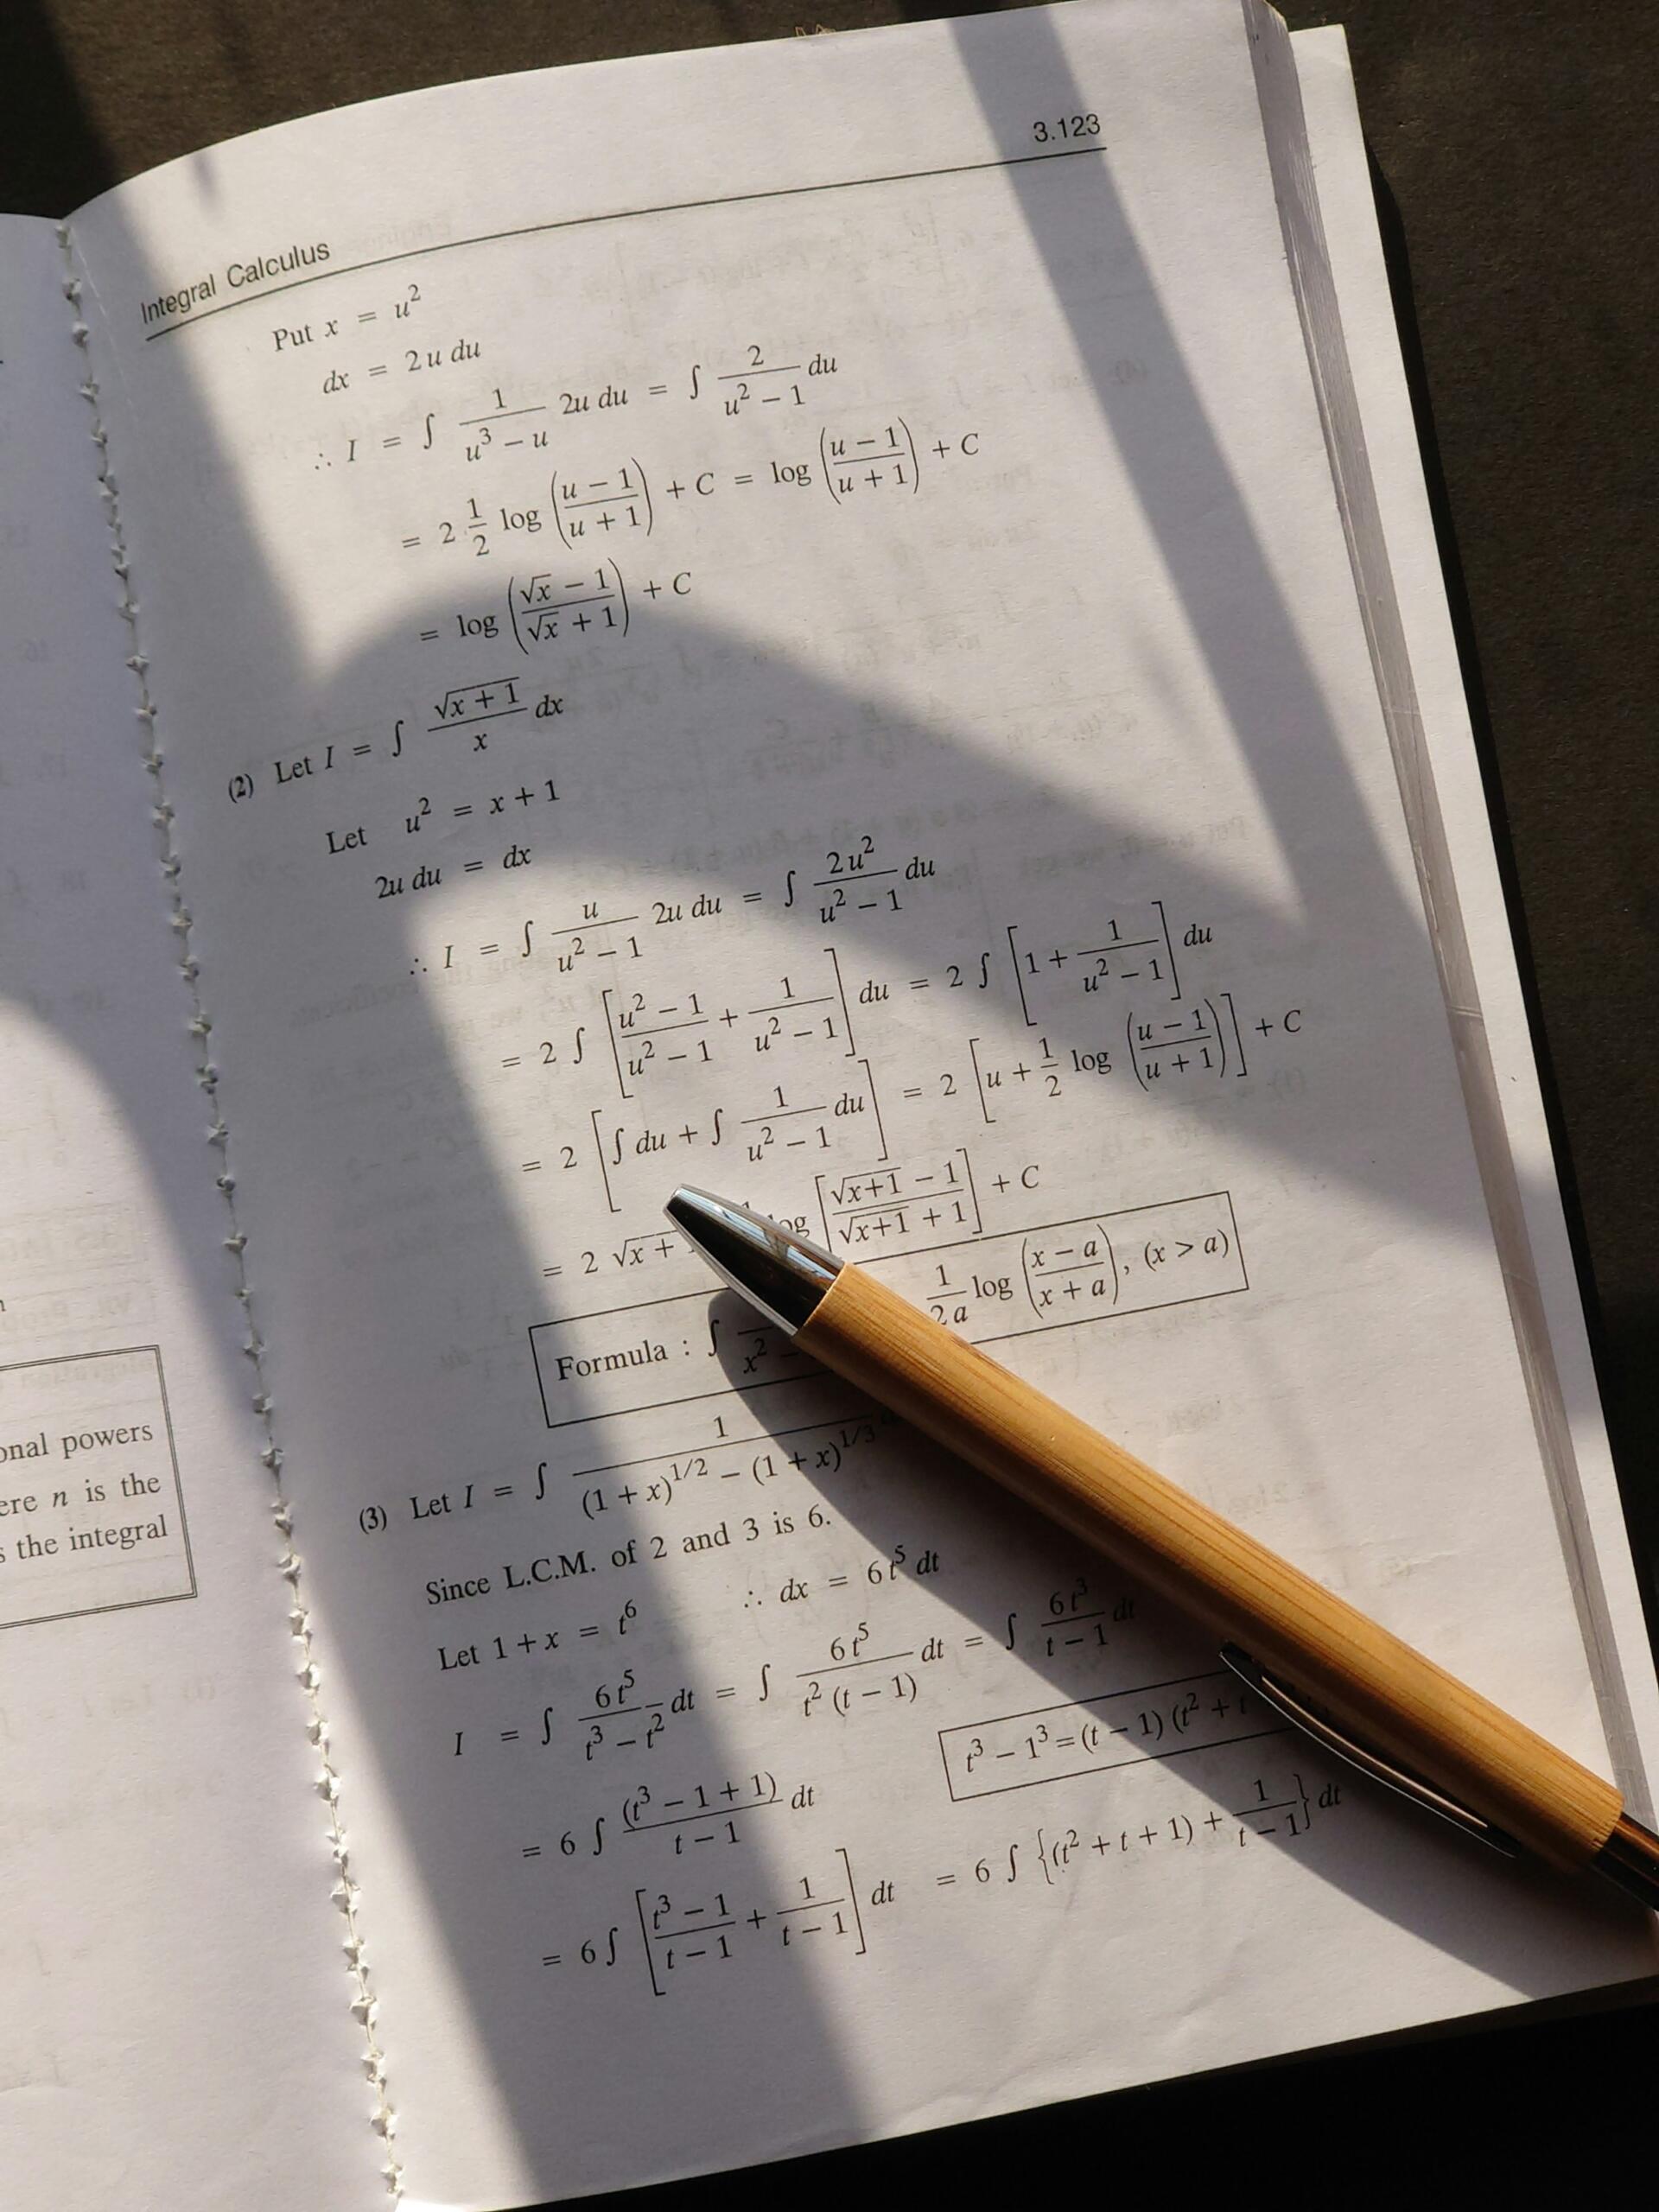 onal powers
ere n is the
s the integral
3.123
Integral Calculus
Put x = u²
dx = 2u du
∴ I = ∫ 1/(u³ − u) 2u du = ∫ 2/(u² − 1) du
= 2 1/2 log ((u − 1)/(u + 1)) + C = log ((u − 1)/(u + 1)) + C
= log ((√x − 1)/(√x + 1)) + C
(2) Let I = ∫ √(x + 1)/x dx
Let u² = x + 1
2u du = dx
∴ I = ∫ u/(u² − 1) 2u du = ∫ 2u²/(u² − 1) du
= 2 ∫ [(u² − 1)/(u² − 1) + 1/(u² − 1)] du = 2 ∫ [1 + 1/(u² − 1)] du
= 2 [∫ du + ∫ 1/(u² − 1) du] = 2 [u + 1/2 log ((u − 1)/(u + 1))] + C
= 2 √x + log [(√(x+1) − 1)/(√(x+1) + 1)] + C
Formula : ∫ x² − 1/(2a) log ((x − a)/(x + a)), (x > a)
(3) Let I = ∫ 1/((1 + x)^(1/2) − (1 + x)^(1/3))
Since L.C.M. of 2 and 3 is 6.
Let 1 + x = t⁶ ∴ dx = 6t⁵ dt
I = ∫ 6t⁵/(t³ − t²) dt = ∫ 6t⁵/(t² (t − 1)) dt = ∫ 6t³/(t − 1) dt
t³ − 1³ = (t − 1) (t² + t
= 6 ∫ (t³ − 1 + 1)/(t − 1) dt
= 6∫ [(t³ − 1)/(t − 1) + 1/(t − 1)] dt = 6 ∫ {(t² + t + 1) + 1/(t − 1)} dt